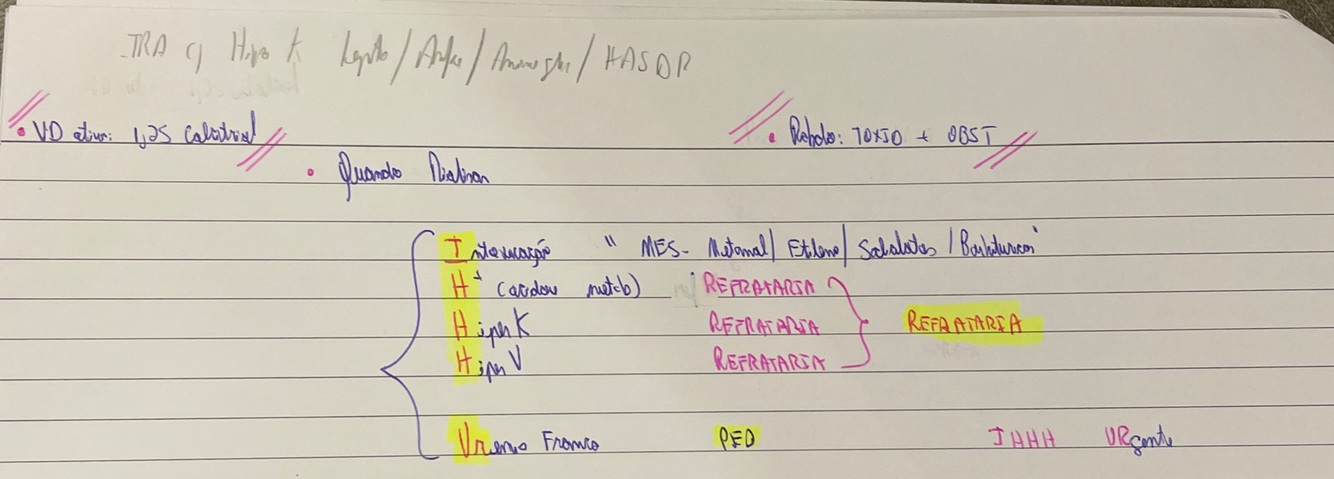 IRA c/ Hipo K Lepto / Anfo / Aminoglic / HASDR
• VD ativa: 1,25 Calcitriol • Rabdo: TOXSO + OBST
• Quando Dialisar
Intoxicação " MES - Metanol / Etileno / Salicilatos / Barbituricos"
H+ (acidose metab) REFRATARIA
HiperK REFRATARIA REFRATARIA
HiperV REFRATARIA
Uremia Franca PED IHHH URgente